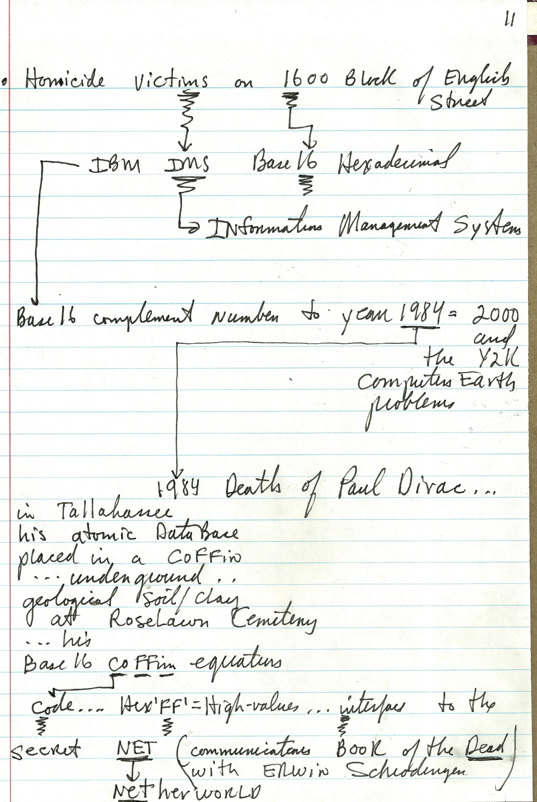 11
• Homicide victims on 1600 Block of English
Street
IBM IMS Base 16 Hexadecimal
INformations Management System
Base 16 complement Number to year 1984 = 2000
and
the Y2K
computers Earth
problems
1984 Death of Paul Dirac...
in Tallahassee
his atomic DataBase
placed in a COFFin
... underground..
geological soil/clay
at Roselawn Cemetery
... his
Base 16 COFFin equations
Code.... Hex'FF'=High-values... interface to the
secret NET (communications Book of the Dead
with ERwin Schrodinger)
NetherWORLD